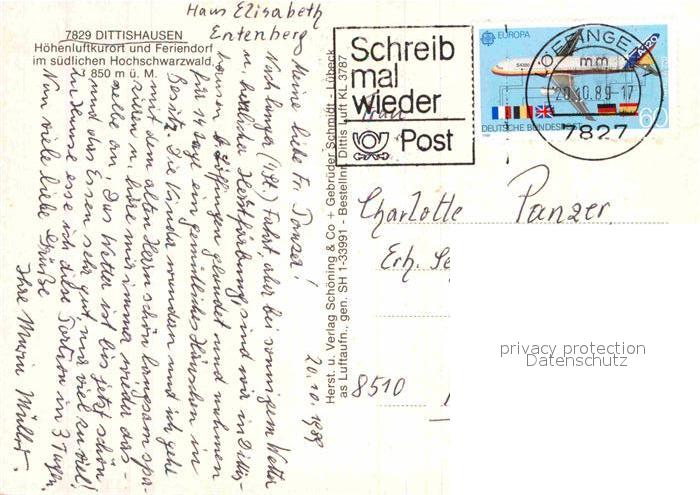 Haus Elisabeth
Entenberg
7829 DITTISHAUSEN
Höhenluftkurort und Feriendorf
im südlichen Hochschwarzwald,
850 m ü. M.
20.10.1989
Meine liebe Fr. Panzer!
Nach langer (7 St.) Fahrt, aber bei sonnigem Wetter
u. herrlicher Herbstfärbung, sind wir in Dittis-
hausen b. Löffingen gelandet und nehmen
für 14 Tage ein gemütliches Häuschen in
Besitz. Die Kinder wandern und ich gehe
mit dem alten Herrn schön langsam spa-
zieren u. höre mir immer wieder das-
selbe an. Das Wetter ist bis jetzt schön
und das Essen sehr gut, nur viel zu viel!
Zu Hause esse ich diese Portion in 3 Tagen.
Nun viele liebe Grüße
Ihre Maria Müller.
Herst. u. Verlag Schöning & Co + Gebrüder Schmidt - Lübeck
as Luftaufn., gen. SH 1-33991 - Bestellnr. Dittis Luft KL 3787
Schreib
mal
wieder
Post
EUROPA
A320
DEUTSCHE BUNDESPOST
60
LÖFFINGEN
mm
20.10.89-17
7827
Frau
Charlotte Panzer
Erh.
8510
privacy protection
Datenschutz